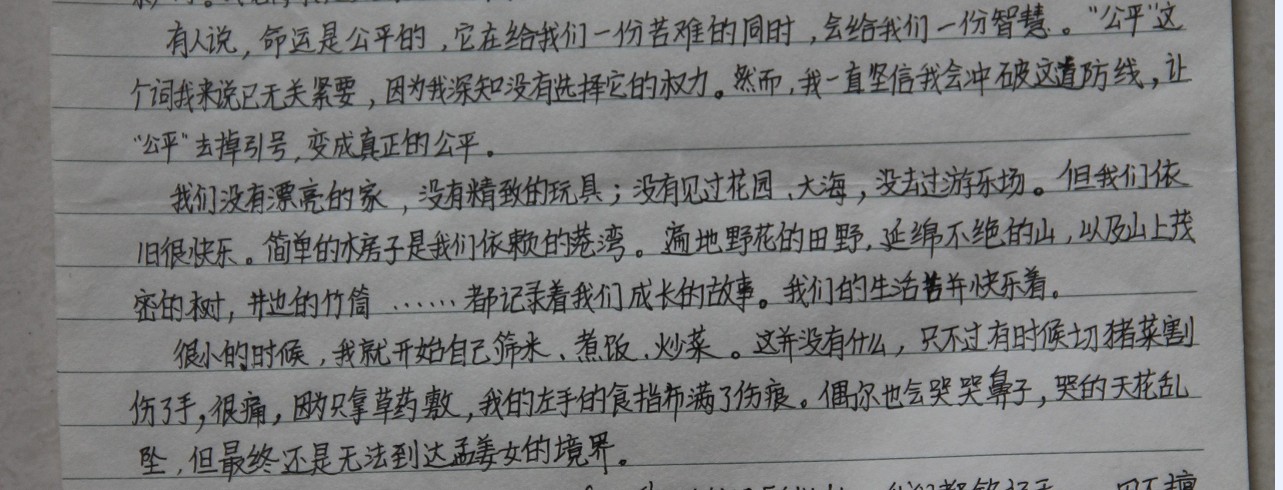 有人说，命运是公平的，它在给我们一份苦难的同时，会给我们一份智慧。“公平”这
个词我来说已无关紧要，因为我深知没有选择它的权力。然而，我一直坚信我会冲破这道防线，让
“公平”去掉引号，变成真正的公平。
我们没有漂亮的家，没有精致的玩具；没有见过花园、大海，没去过游乐场。但我们依
旧很快乐。简单的木房子是我们依赖的港湾。遍地野花的田野，延绵不绝的山，以及山上茂
密的树，井边的竹筒……都记录着我们成长的故事。我们的生活苦并快乐着。
很小的时候，我就开始自己筛米、煮饭、炒菜。这并没有什么，只不过有时候切猪菜割
伤了手，很痛，因为只拿草药敷，我的左手的食指布满了伤痕。偶尔也会哭哭鼻子，哭的天花乱
坠，但最终还是无法到达孟姜女的境界。